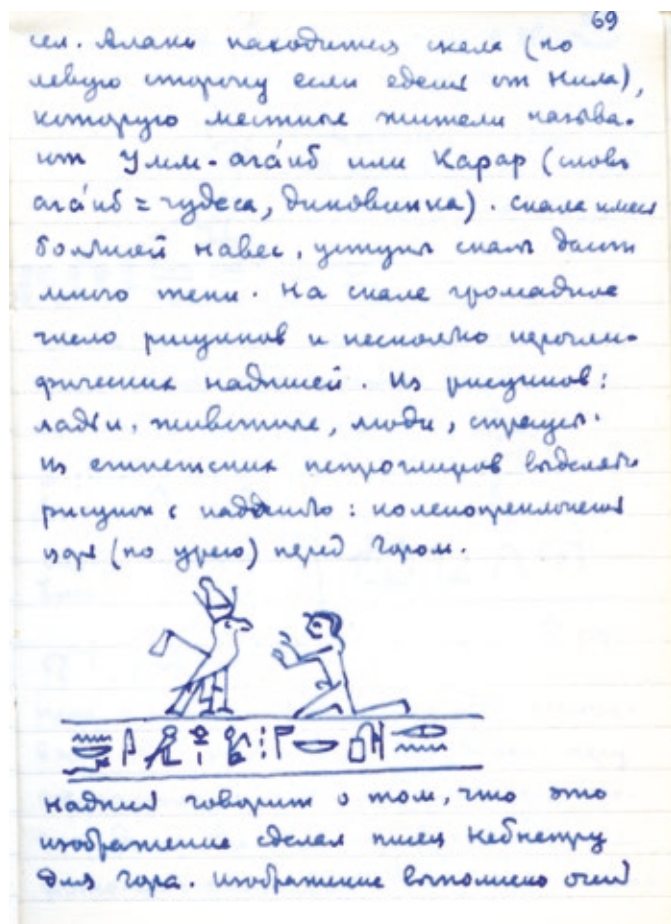 69
сел. Алаки находится скала (по
левую сторону если едешь от Нила),
которую местные жители называ-
ют Умм-ага́иб или Карар (словь
ага́иб = чудеса, диковинка). Скала имеет
большой навес, уступы скалы дают
много тени. На скале громадное
число рисунков и несколько иерогли-
фических надписей. Из рисунков:
ладьи, животные, люди, страусы.
Из египетских петроглифов выделяется
рисунок с надписью: коленопреклоненный
царь (по урею) перед Гором.
Надпись говорит о том, что это
изображение сделал писец
для Гора. Изображение выполнено очень